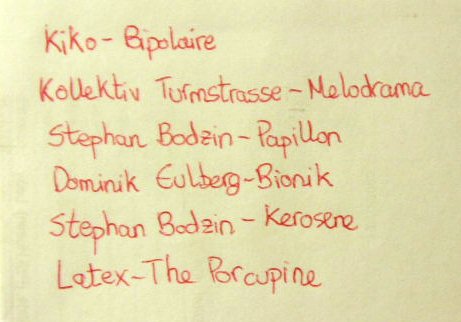 Kiko - Bipolaire
Kollektiv Turmstrasse - Melodrama
Stephan Bodzin - Papillon
Dominik Eulberg - Bionik
Stephan Bodzin - Kerosene
Latex - The Porcupine